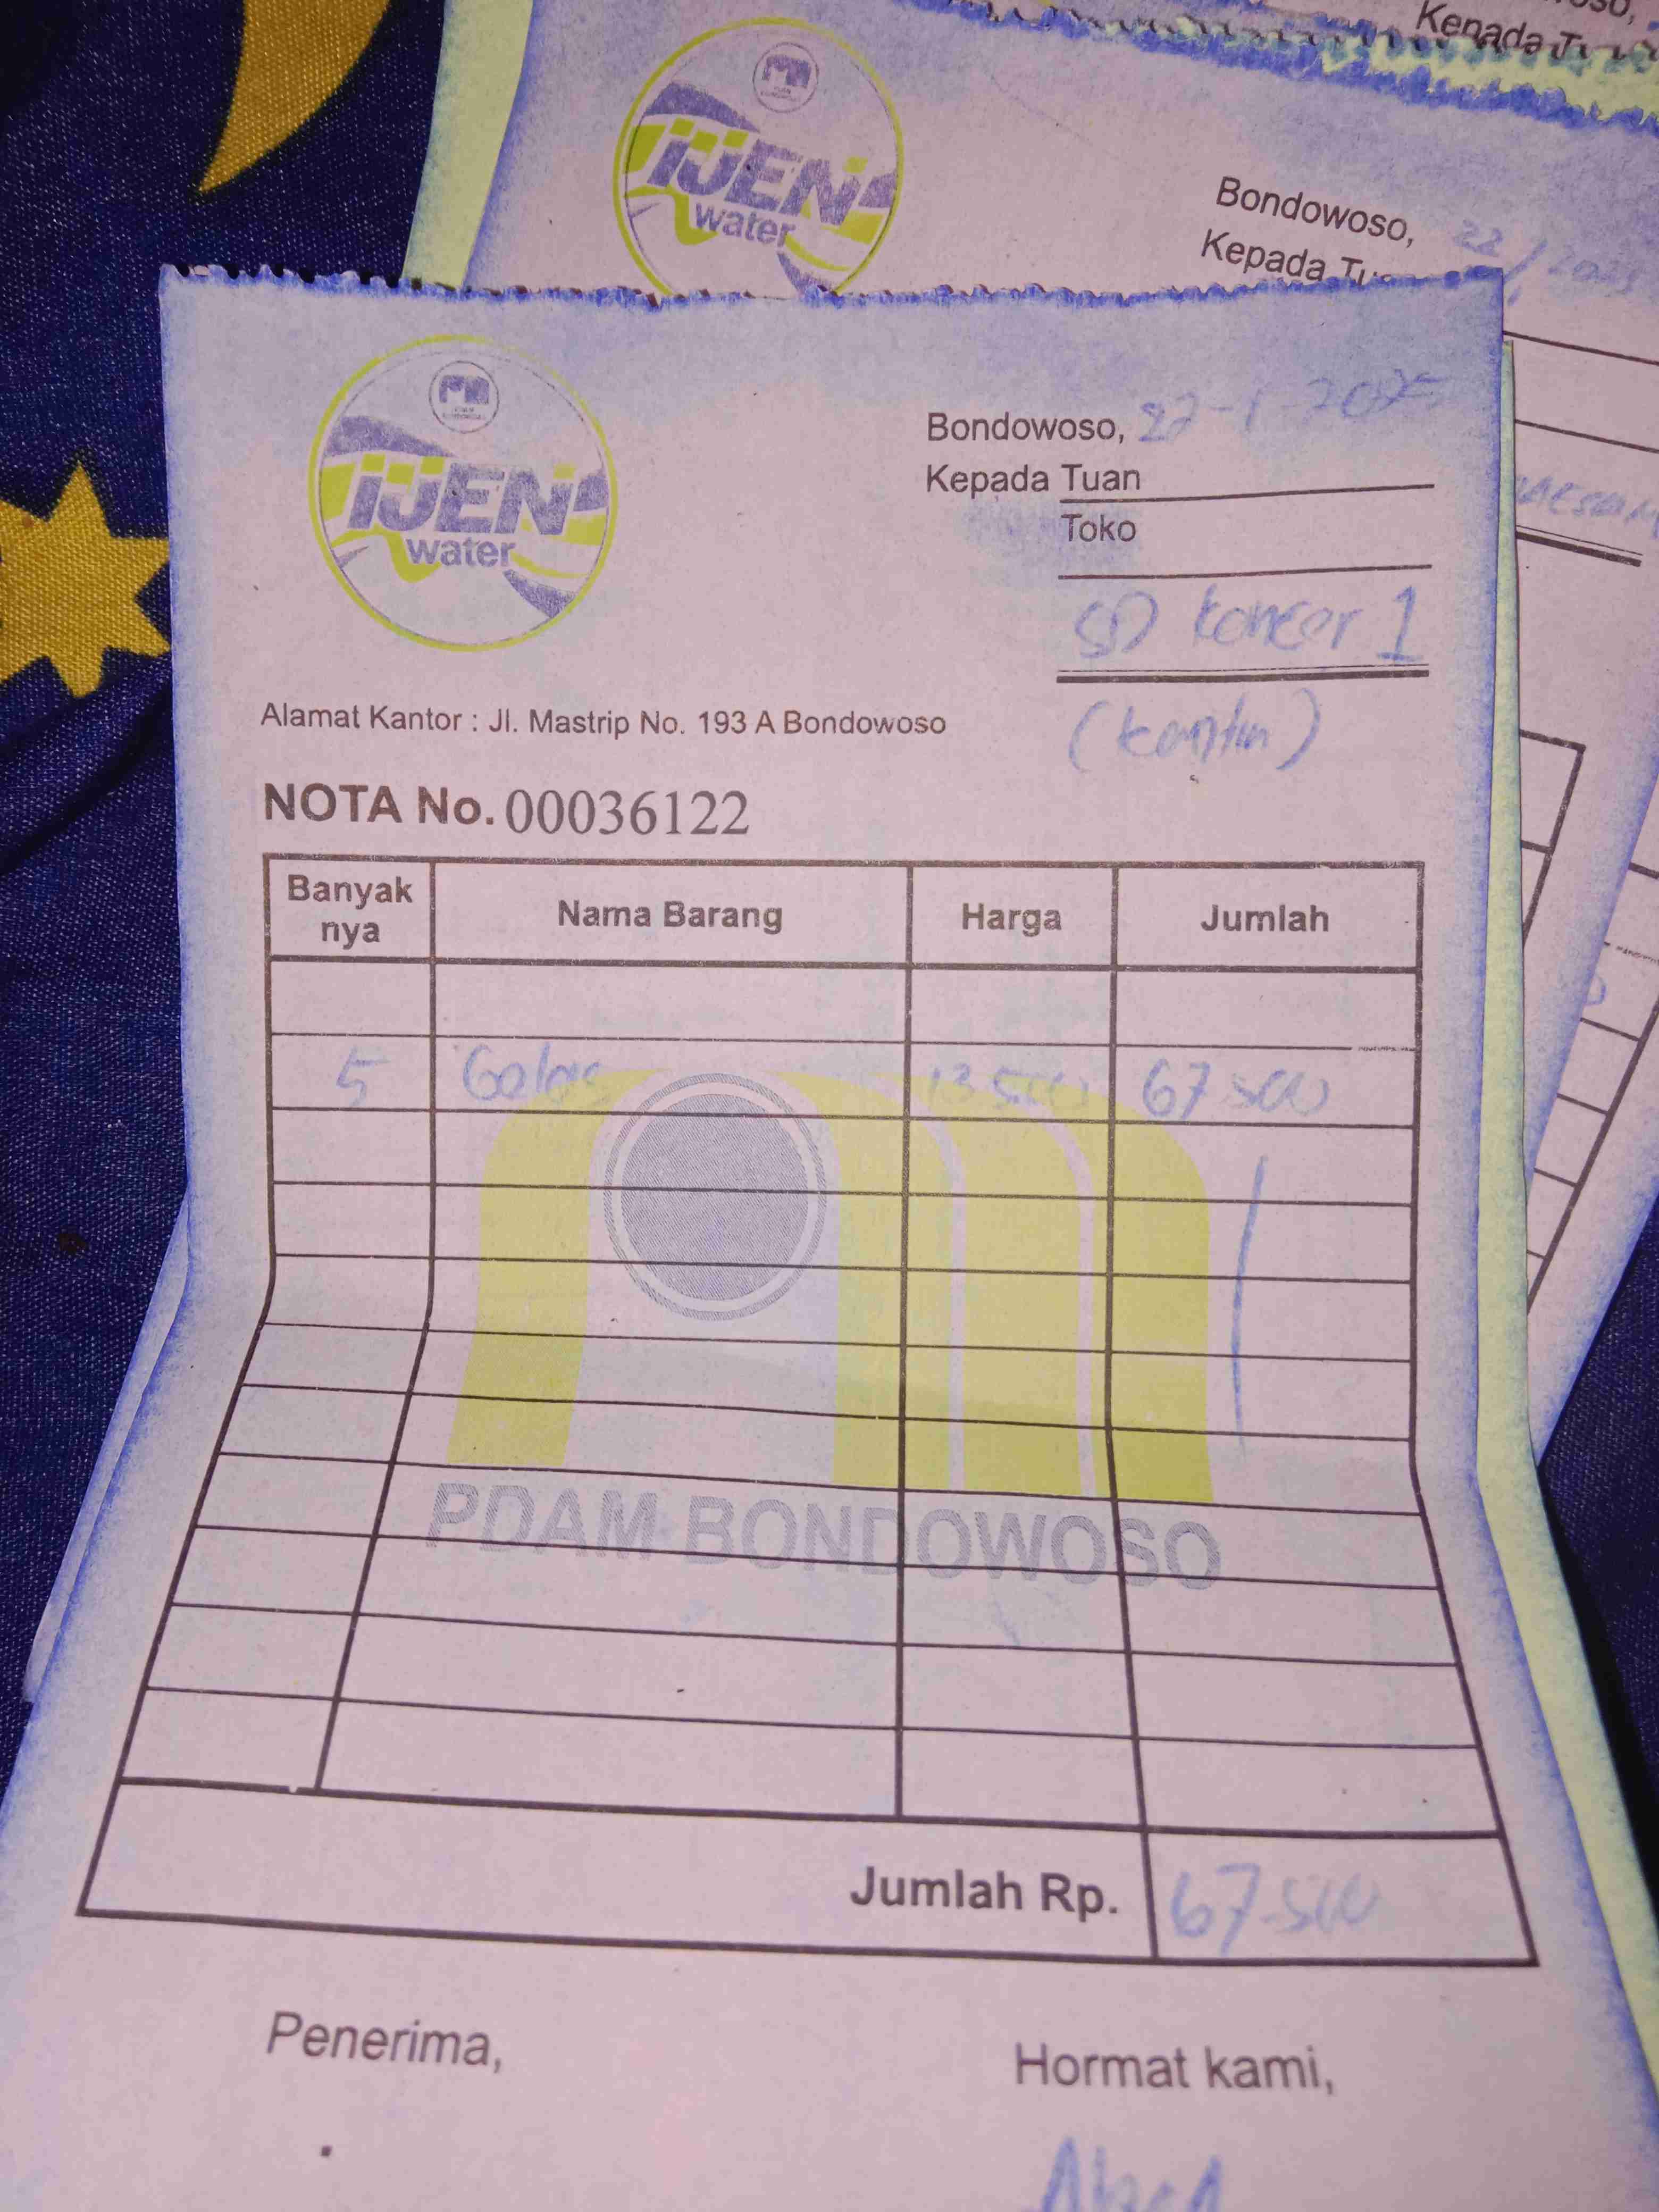 Kepada Tu
IJEN
water
Bondowoso, 22/
Kepada Tu
IJEN
water
Bondowoso, 27-1-2025
Kepada Tuan
Toko
SD koncer 1
(kantin)
Alamat Kantor : Jl. Mastrip No. 193 A Bondowoso
NOTA No. 00036122
Banyak nya Nama Barang Harga Jumlah
5 Gelas 13.500 67.500
PDAM BONDOWOSO
Jumlah Rp. 67.500
Penerima, Hormat kami,